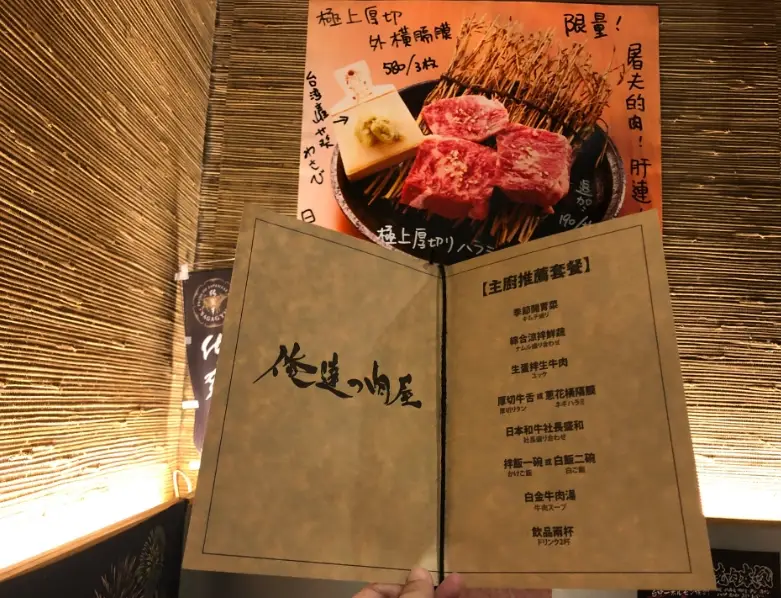 極上厚切
外橫膈膜
580/3枚
限量!
屠夫的肉!肝連
台灣產
わさび
追加
極上厚切りハラミ
俺達の肉屋
【主廚推薦套餐】
季節開胃菜
キムチ盛り
綜合涼拌鮮蔬
ナムル盛り合わせ
生蛋拌生牛肉
ユッケ
厚切牛舌 或 蔥花橫隔膜
厚切りタン ネギハラミ
日本和牛社長盛和
社長盛り合わせ
拌飯一碗 或 白飯二碗
かけご飯 白ご飯
白金牛肉湯
牛肉スープ
飲品兩杯
ドリンク2杯